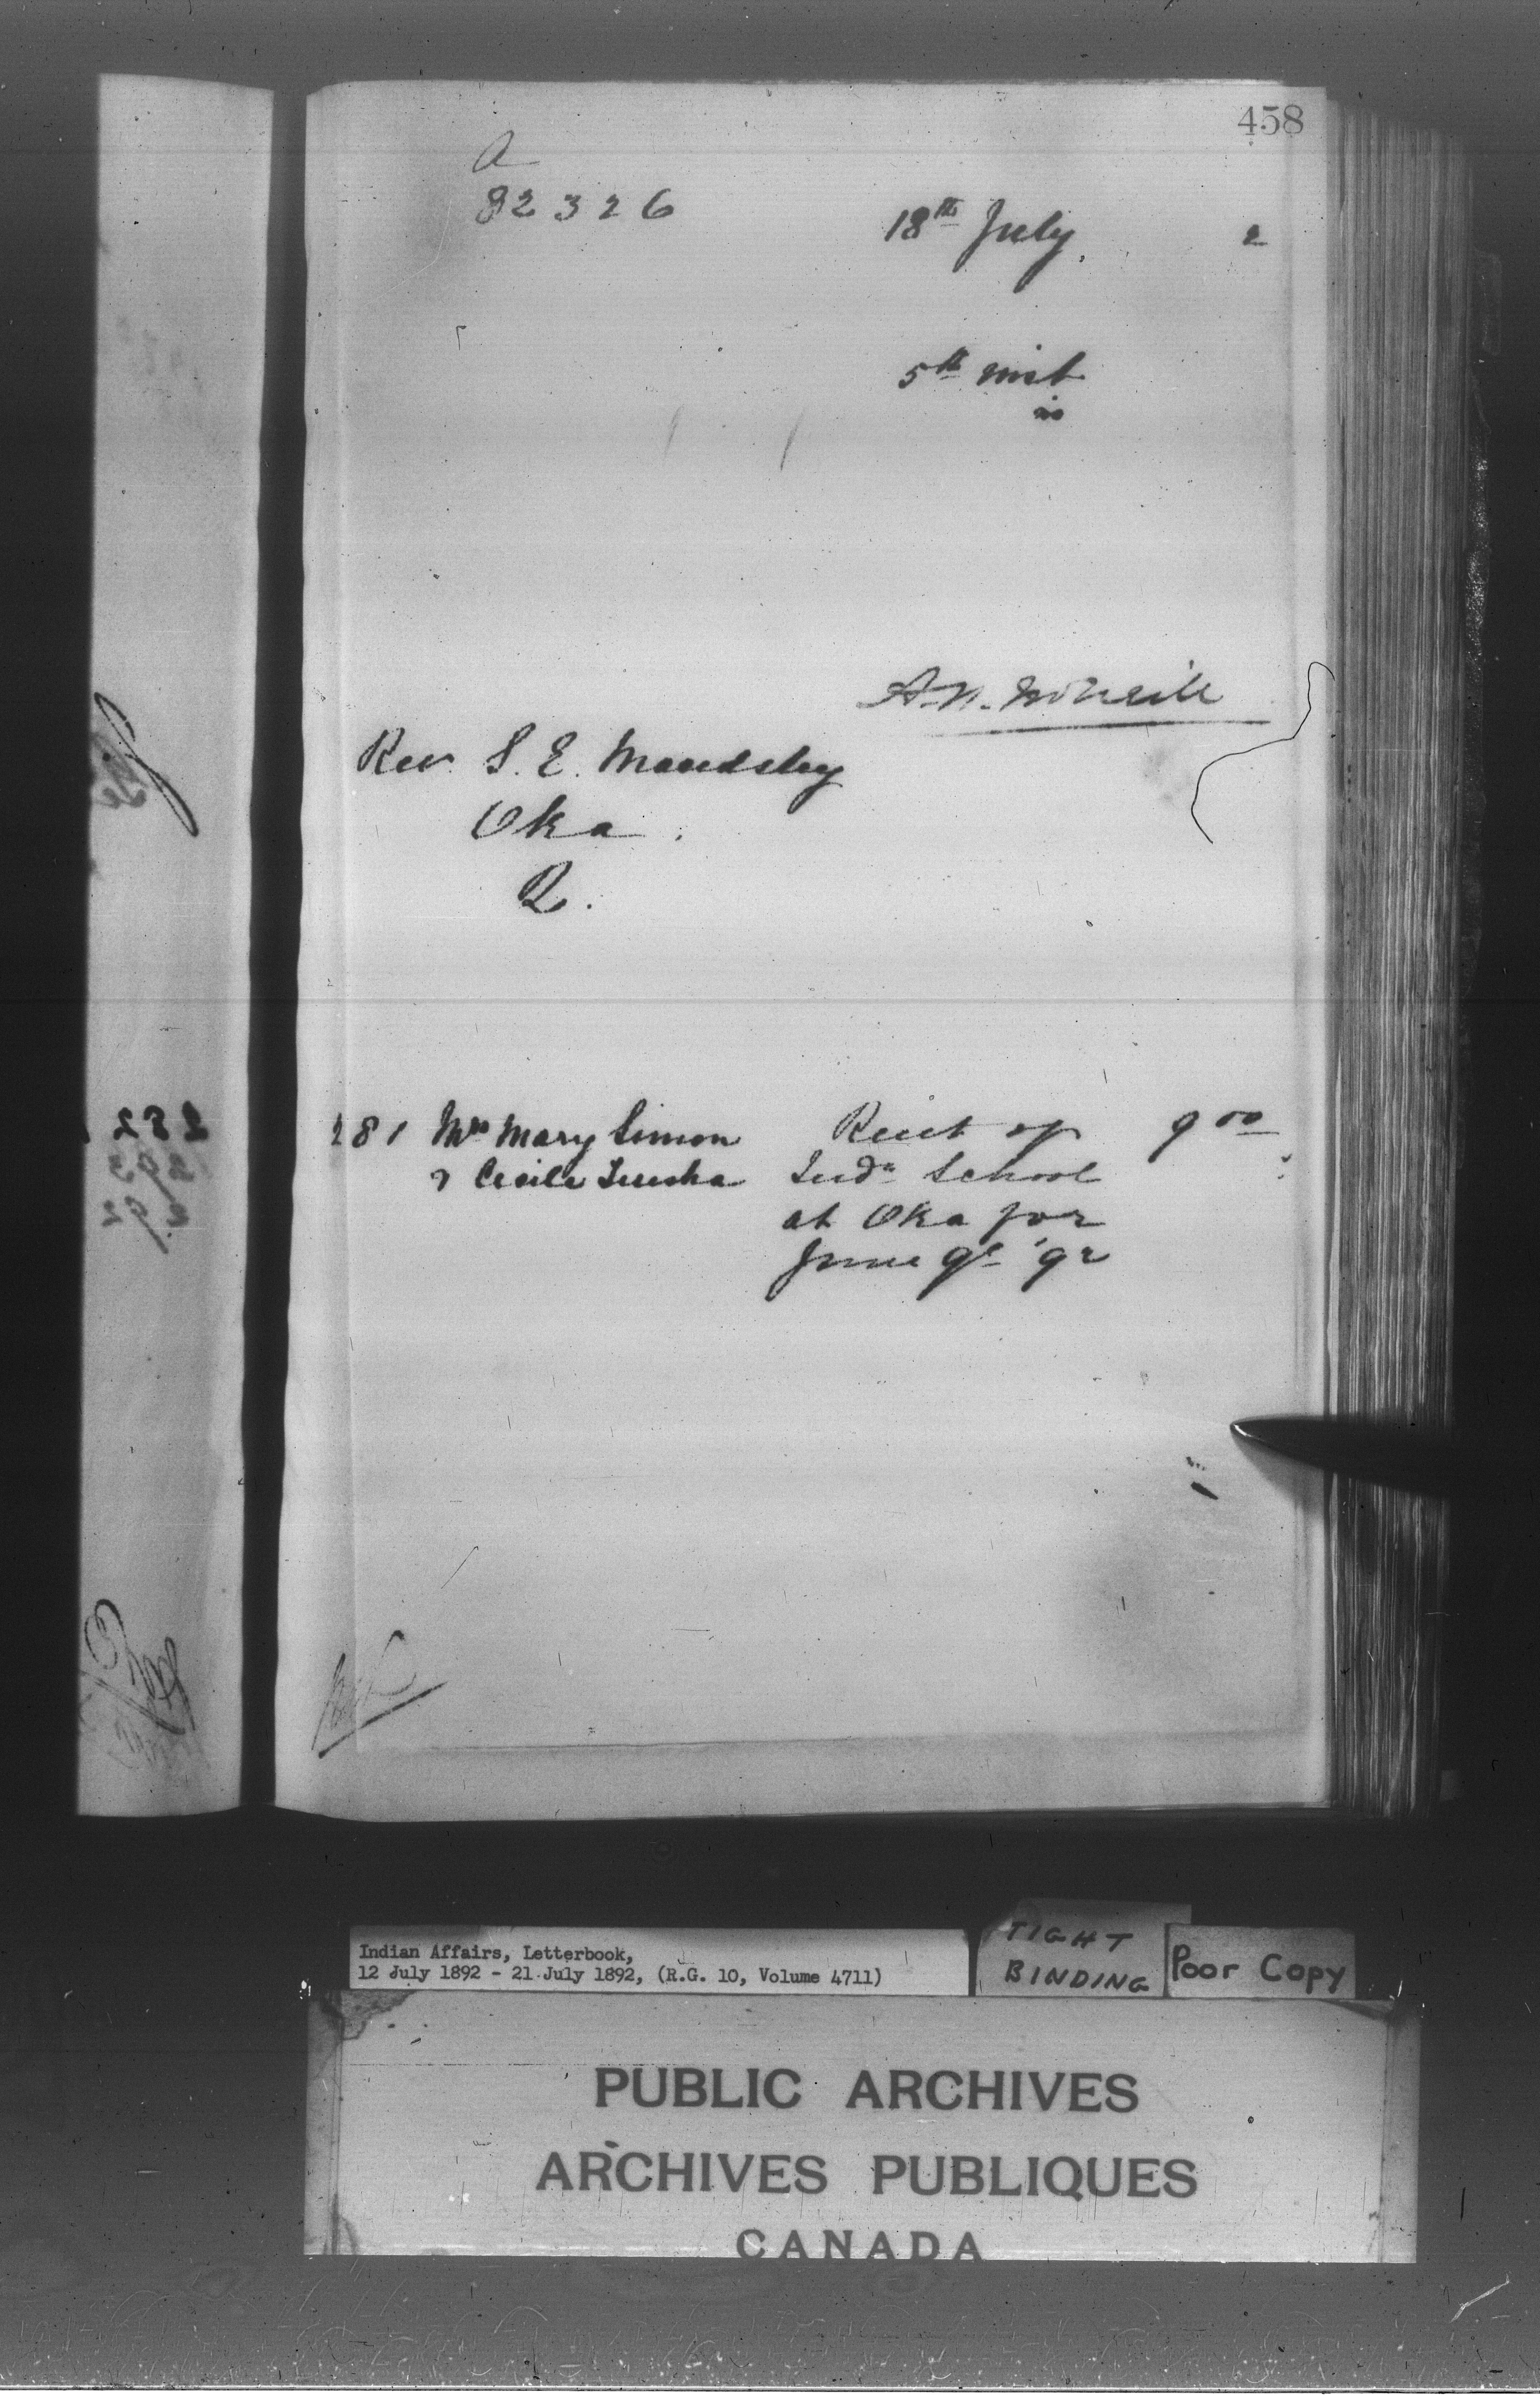 458
A
82326
18th July 2
5th inst
is
A. N. McNeill
Rev. S. E. Maudsley
Oka
Q.
281 Mrs Mary Simon Rent of 9 00
& Cecile Ind. School
at Oka for
June Qr '92
Indian Affairs, Letterbook,
12 July 1892 - 21 July 1892, (R.G. 10, Volume 4711)
TIGHT
BINDING
Poor Copy
PUBLIC ARCHIVES
ARCHIVES PUBLIQUES
CANADA